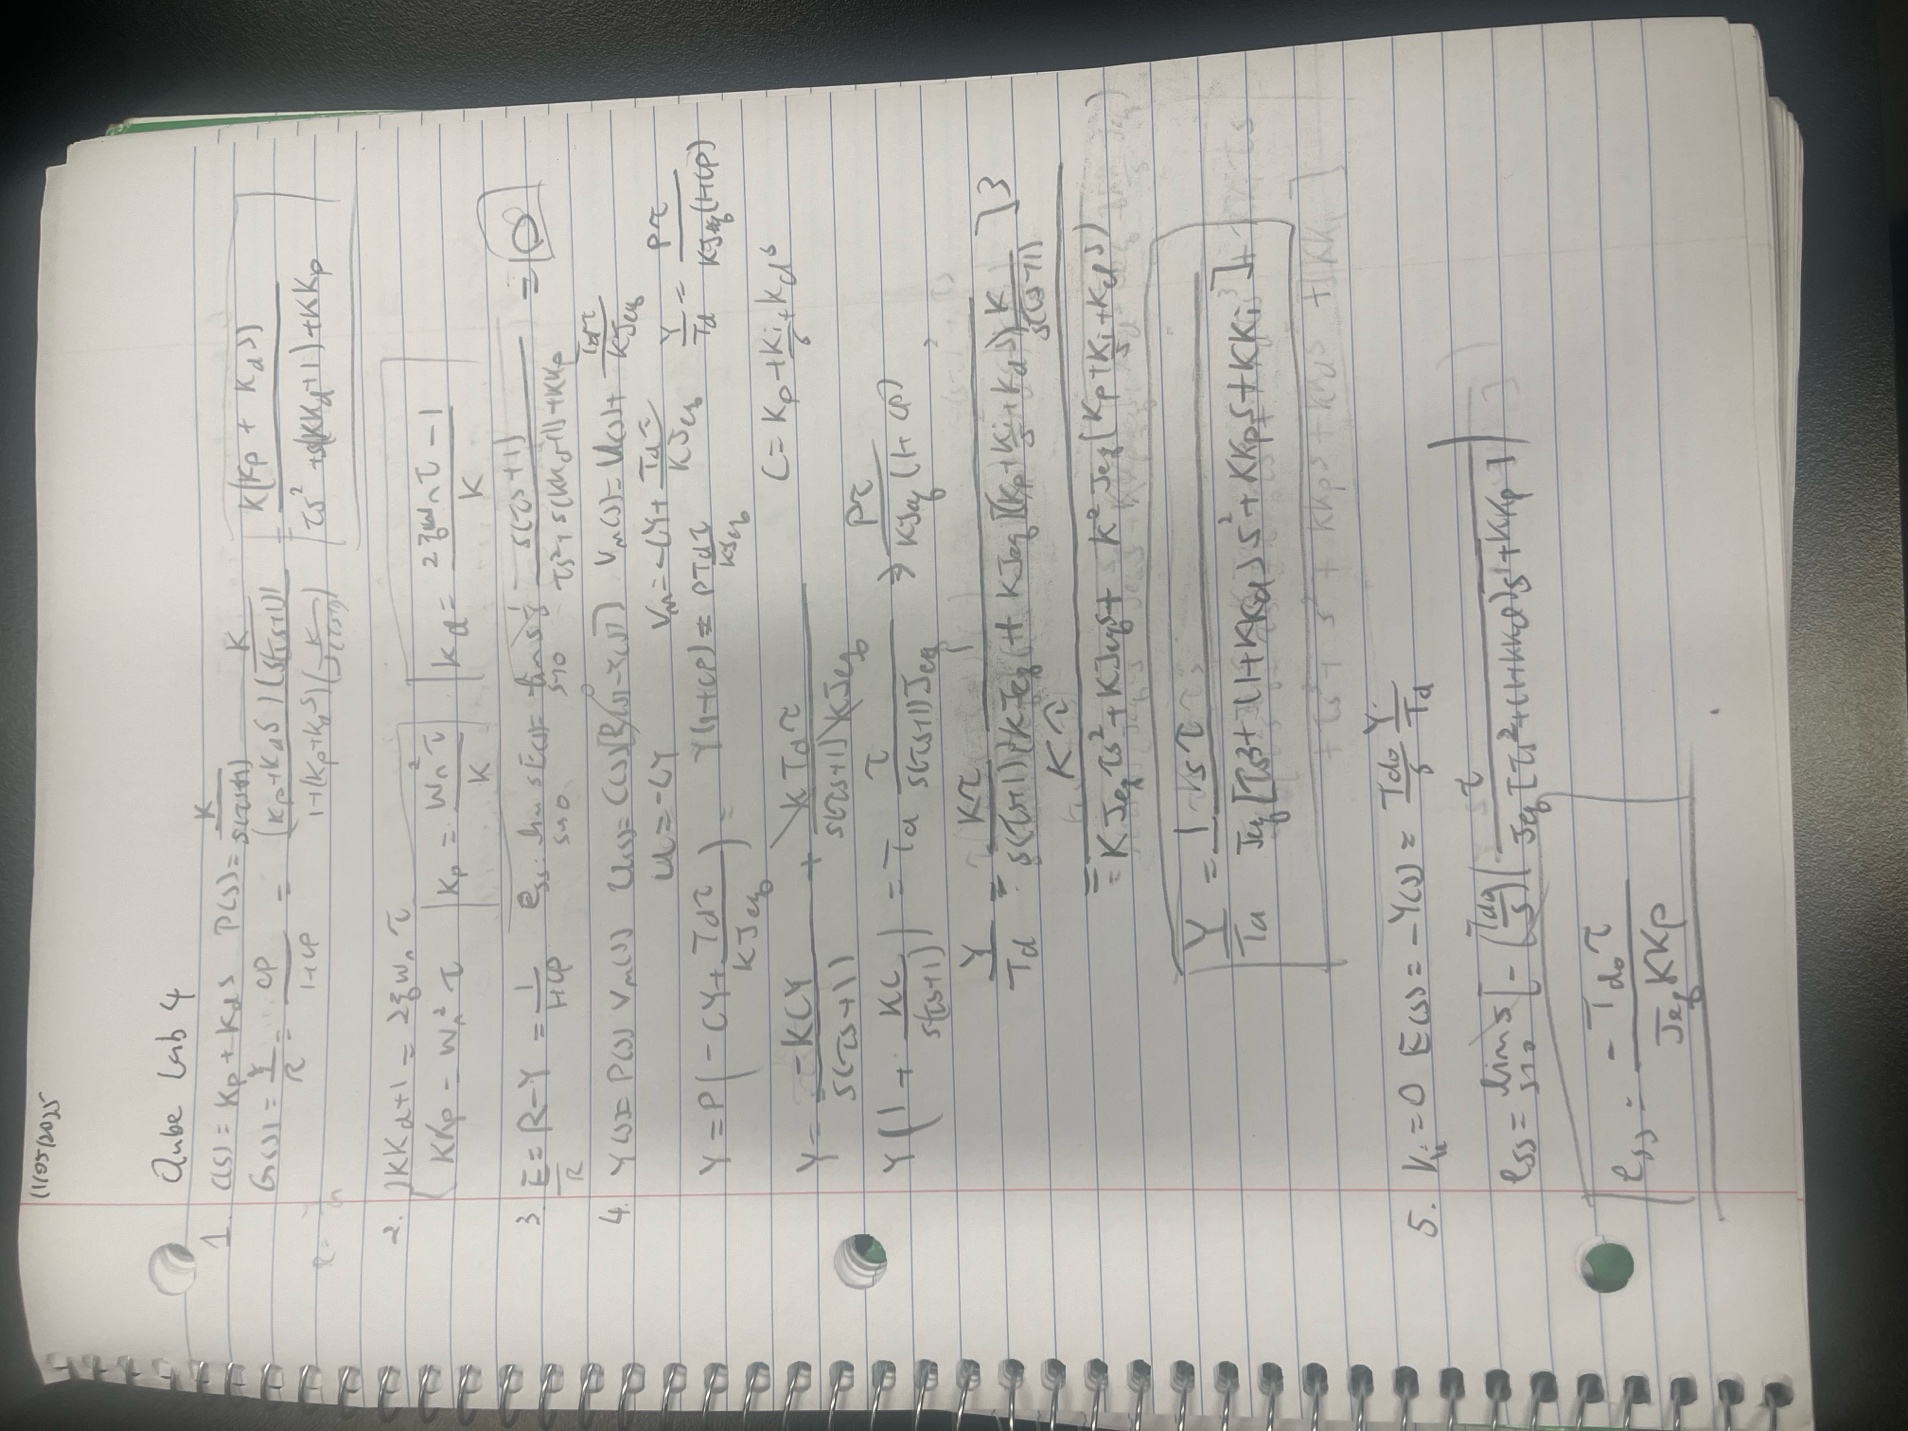 11/05/2025
Qube Lab 4
1. C(s) = Kp + Kd s P(s) = K / s(τs+1)
G(s) = Y/R = CP / 1+CP = (Kp + Kd s)(K / s(τs+1)) / 1+(Kp+Kd s)(K / s(τs+1)) = K(Kp + Kd s) / τs² + s(KKd+1) + KKp
2. { KKd+1 = 2ζωn τ
KKp = ωn² τ Kp = ωn² τ / K Kd = 2ζωn τ - 1 / K
3. E/R = R-Y = 1 / 1+CP ess = lim s→0 sE(s) = lim s→0 s(τs+1) / τs² + s(KKd+1)+KKp = 0
4. Y(s) = P(s) Vm(s) U(s) = C(s)[R(s) - Y(s)] Vm(s) = U(s) + Tdτ / KJeq
U = -CY Vm = -CY + Tdτ / KJeq Y/Td = Pτ / KJeq(1+CP)
Y = P(-CY + Tdτ / KJeq) = Y(1+CP) = PTdτ / KJeq
C = Kp + Ki/s + Kd s
Y = -KCY / s(τs+1) + KTdτ / s(τs+1)KJeq
Y(1 + KC / s(τs+1)) = Td τ / s(τs+1)Jeq → Pτ / KJeq(1+CP)
Y/Td = Kτ / s(τs+1)KJeq [(Kp + Ki/s + Kd s) K / s(τs+1)]
= Kτ / KJeq τs² + KJeq s + K² Jeq (Kp + Ki/s + Kd s)
Y/Td = 1sτ / Jeq[τs³ + (1+KKd)s² + KKp s + KKi]
5. Ki = 0 E(s) = -Y(s) = Tdo/s Y/Td
ess = lim s→0 s[-(Tdo/s)(τ / Jeq[τs² + (1+KKd)s + KKp])]
ess = - Tdo τ / Jeq KKp